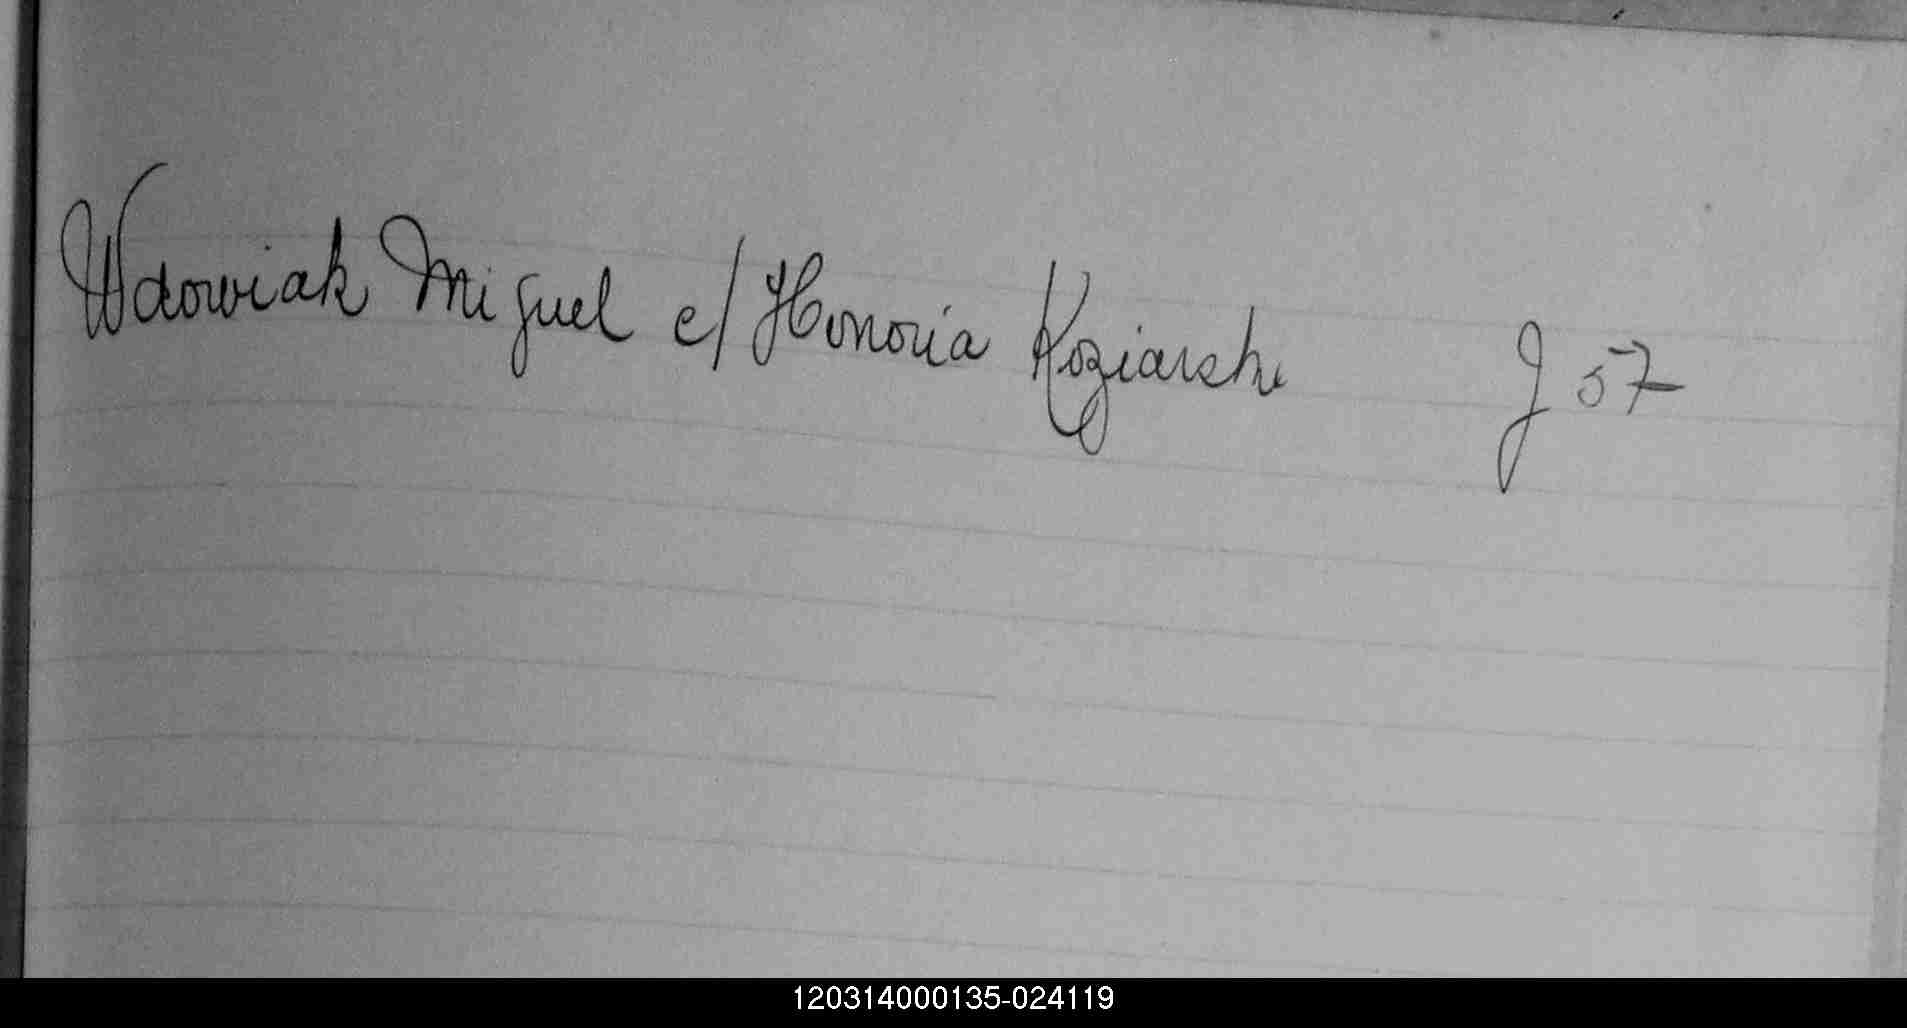 Wdowiak Miguel c/ Honoria Koziarski J 57
120314000135-024119